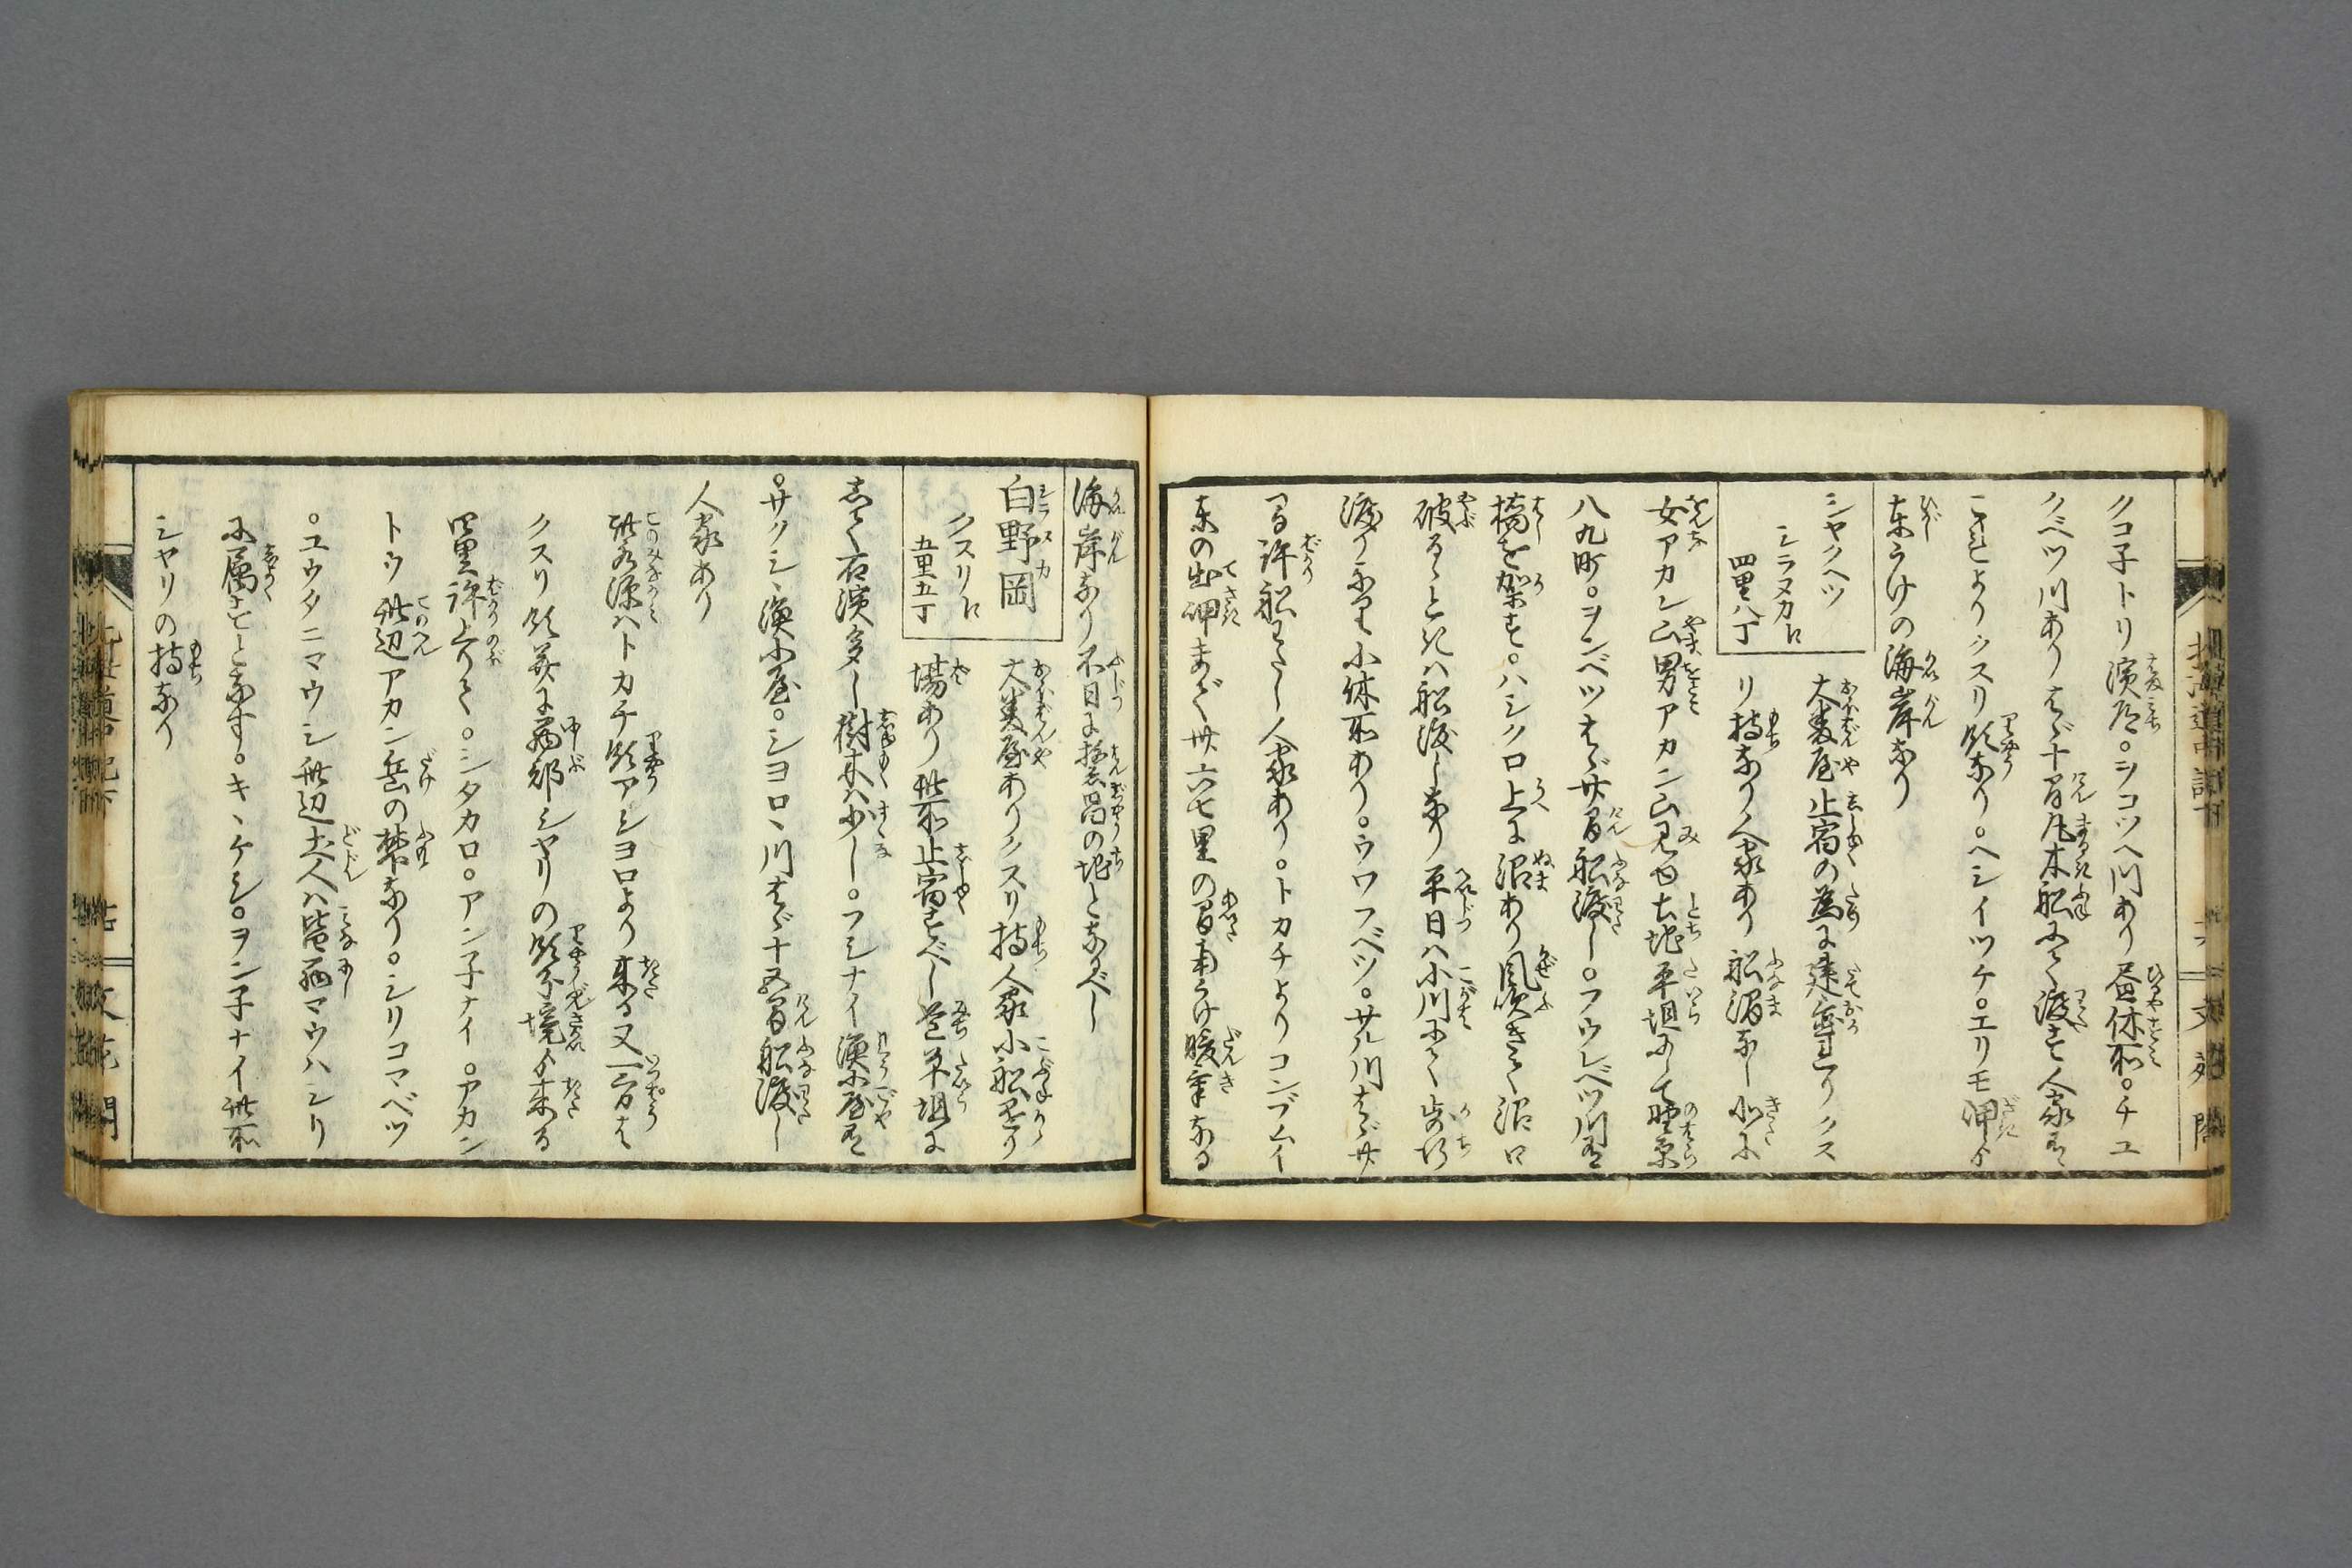 クコ子トリ濱道。シコツヘ川あり昼休所。チユ
クベツ川あり はゞ十間丸木船にて渡す人家有
これよりクスリ領なり。ヘシイツケ。エリモ岬より
東うけの海岸なり
シヤクヘツ
シラヌカヒ
四里八丁
大番屋止宿の為に建置りクス
リ持なり人家あり 船澗なし 北に
女アカン山男アカン山見ゆ 土地平坦にして野原
八九町。ヲンベツ はゞ廿間船渡し。フウレベツ川有
橋を架す。ハシクロ上に沼あり風吹きて沼口
破るゝときハ船渡しなり平日ハ小川にて歩行
渡りなり 小休所あり。ウワフベツ。サル川はゞ廿
間許船わたし人家あり。トカチよりコンブムイ
東の出岬まで廿六七里の間南うけ暖氣なる
海岸なり不日に極繁昌の地となるべし
白野岡
クスリヒ
五里五丁
大番屋ありクスリ持人家小船懸り
場あり 此所止宿すべし 道平坦に
して右濱多し樹木ハ少し。フシナイ漁小屋有
。サクシヽ漁小屋。シヨロヽ川はゞ十五間船渡し
人家あり
此水源ハトカチ領アシヨロより来る又一方は
クスリ領並に
シヤリの領分境より来る
四里許上りて。シタカロ。アン子ナイ。アカン
トウ此辺アカン岳の梺なり。シリコマベツ
。ユウタニマウシ此辺土人ハ皆
マウハシリ
に属すと云。キヽケシ。ヲン子ナイ此所
シヤリの持なり